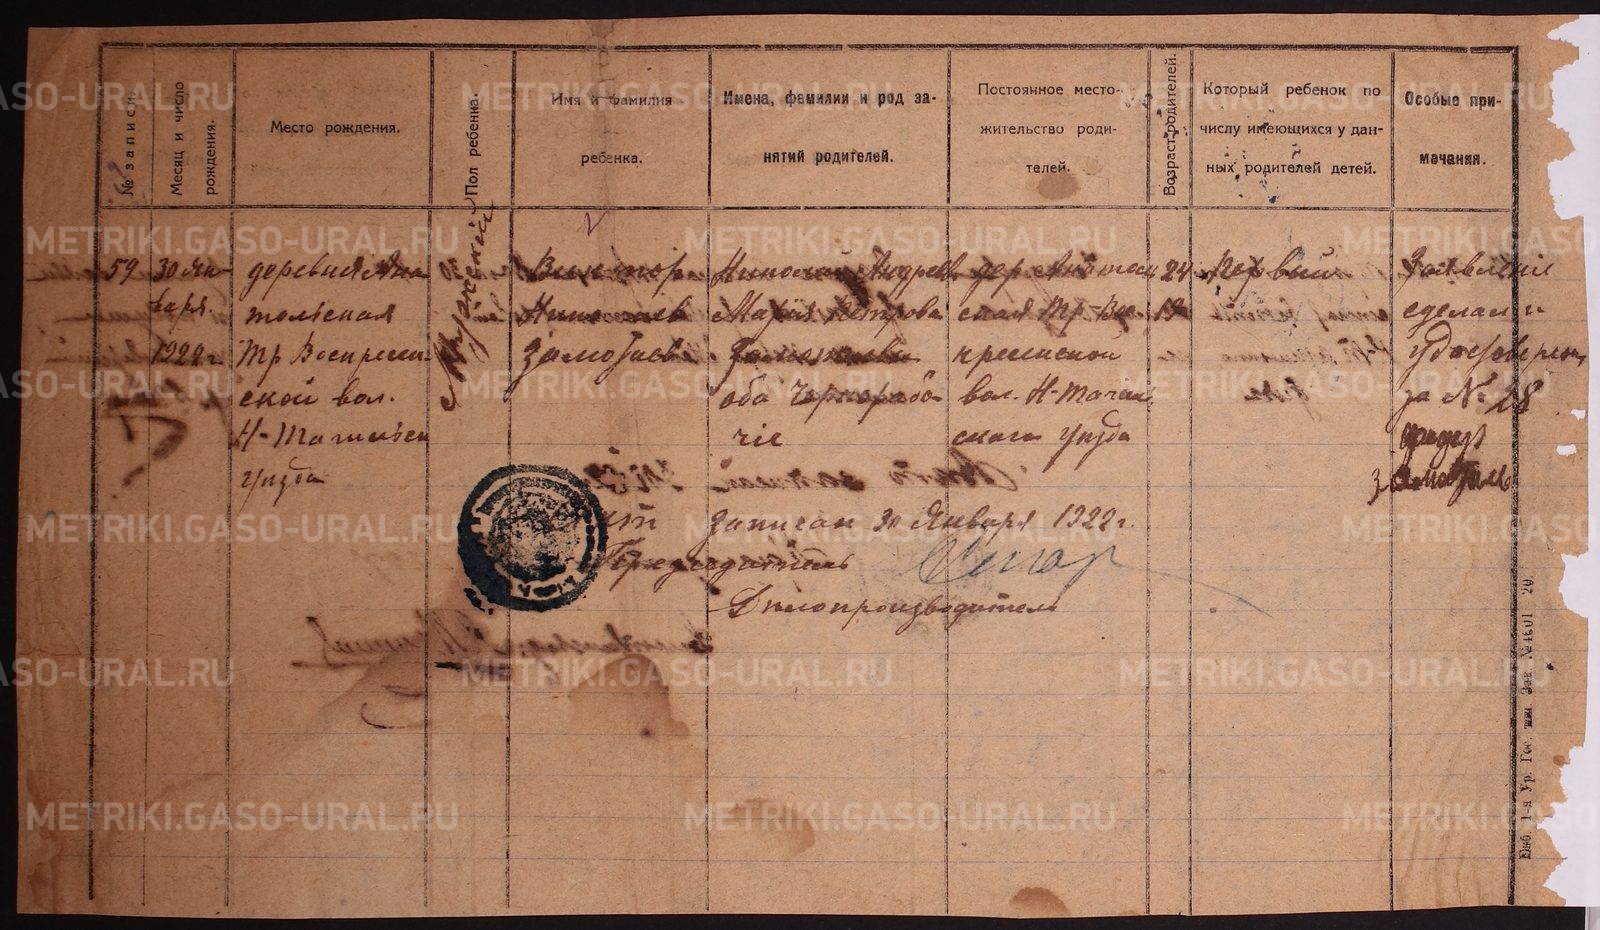 № записи.
Месяц и число
рождения.
Место рождения.
Пол ребенка.
Имя и фамилия
ребенка.
Имена, фамилии и род за-
нятий родителей.
Постоянное место-
жительство роди-
телей.
Возраст родителей.
Который ребенок по
числу имеющихся у дан-
ных родителей детей.
Особые при-
мечания.
59
30 Ян-
варя
1922 г.
деревня Ана
тольская
Тр Воскресен
ской вол.
Н-Тагильск
уезда
Мужской
Виктор
Николаев
Замотаев
Николай Андреев
Мария Петрова
Замотаевы
оба Чернорабо
чіе
дер Анатоль
ская Тр-Вос
кресенской
вол. Н-Тагил
скаго уезда
24
19
Первый
Заявление
сделал и
удостоверен
за № 28
Замотаев
записан 30 Января 1922 г.
Председатель
Делопроизводитель
METRIKI.GASO-URAL.RU